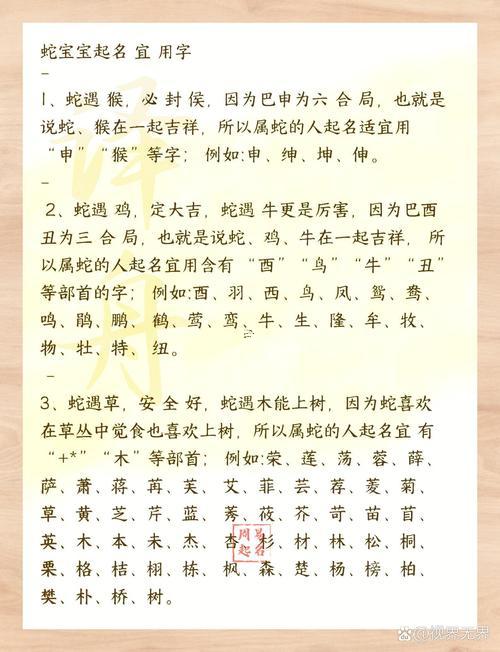 蛇宝宝起名 宜 用字
–
1、蛇遇 猴，必 封 侯，因为巴申为六 合 局，也就是
说蛇、猴在一起吉祥，所以属蛇的人起名适宜用
“申”“猴”等字； 例如:申、绅、坤、伸。
–
2、蛇遇 鸡，定大吉，蛇遇 牛更是厉害，因为巴酉
丑为三 合 局，也就是说蛇、鸡、牛在一起吉祥， 所
以属蛇的人起名宜用含有 “酉” “鸟” “牛” “丑”
等部首的字； 例如:酉、羽、西、鸟、凤、鸳、鸯、
鸣、鹃、鹏、 鹤、莺、鸾、牛、生、隆、牟、牧、
物、牡、特、 纽。
–
3、蛇遇草，安 全 好，蛇遇木能上树，因为蛇喜欢
在草丛中觉食也喜欢上树，所以属蛇的人起名宜 有
“+*” “木”等部首； 例如:荣、莲、荡、蓉、薛、
萨、萧、蒋、苒、芙、 艾、菲、芸、荐、菱、菊、
草、黄、芝、芹、蓝、 莠、莜、芥、苛、苗、苜、
英、木、本、未、杰、 杏、杉、材、林、松、桐、
栗、格、桔、栩、栋、 枫、森、楚、杨、榜、柏、
樊、朴、桥、树。
译舟
周易
起名
@视界无界